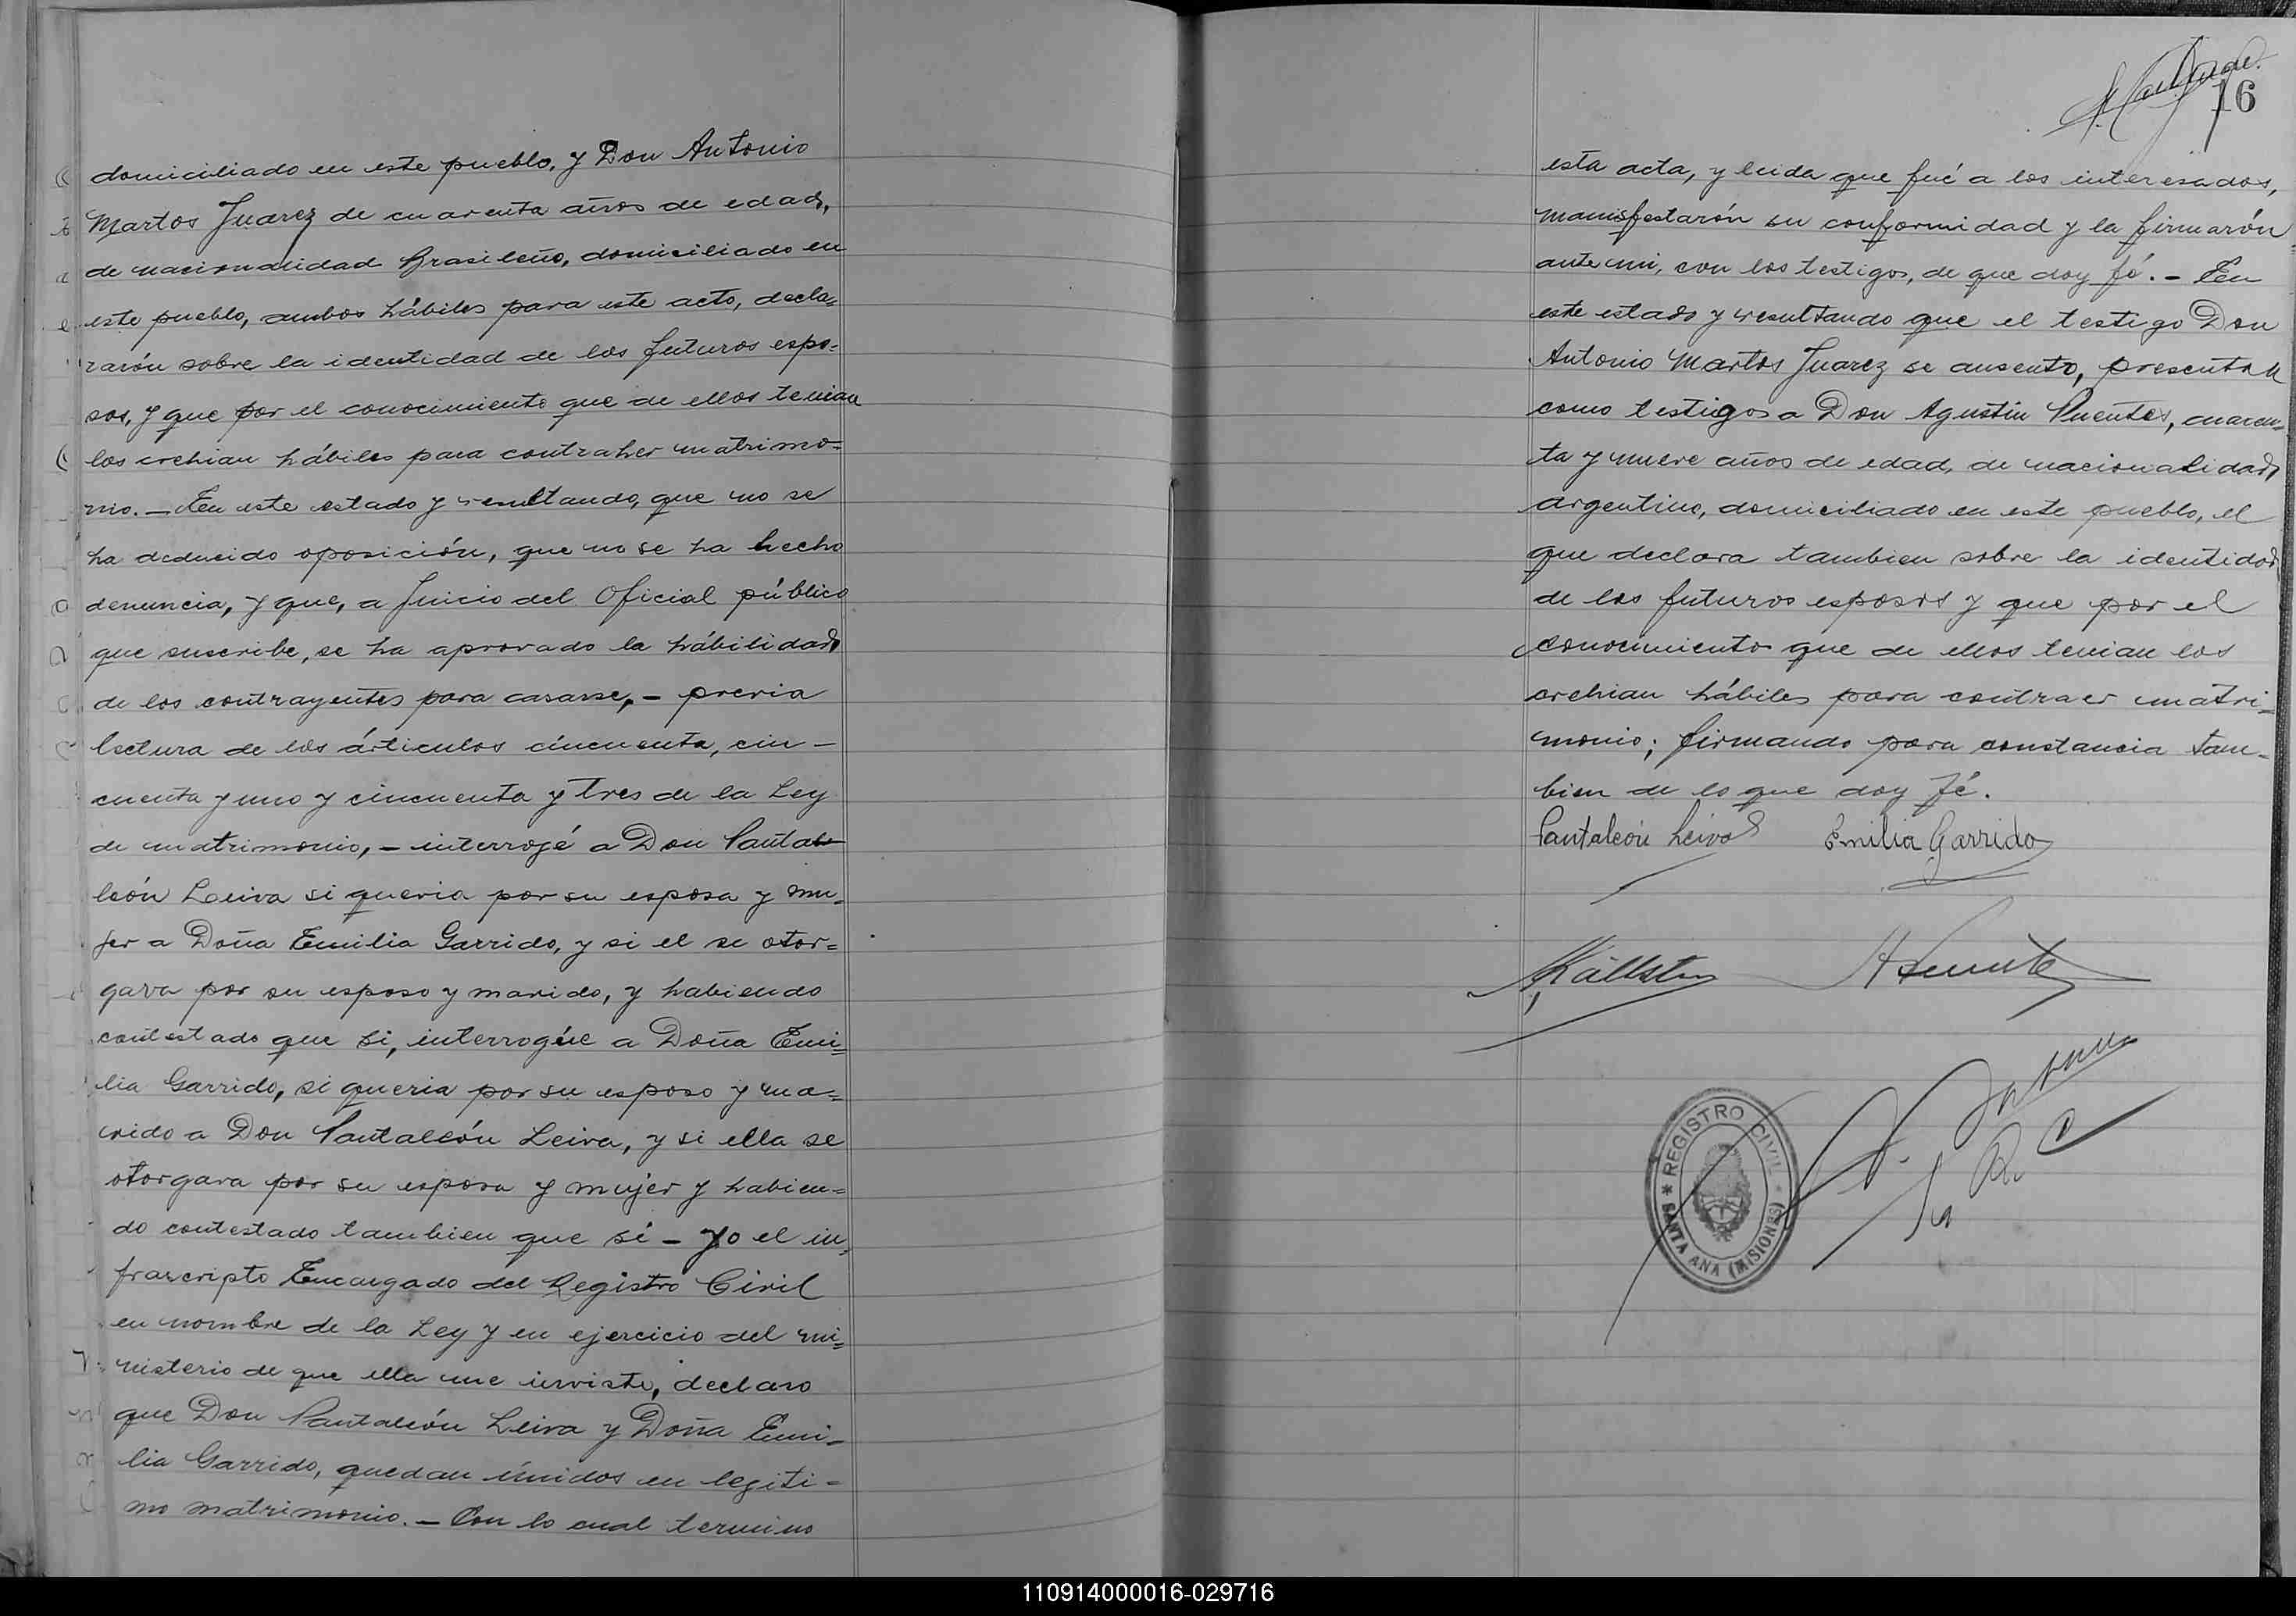 domiciliado en este pueblo, y Don Antonio
Martos Juarez de cuarenta años de edad,
de nacionalidad Brasileño, domiciliado en
este pueblo, ambos hábiles para este acto, decla=
rarón sobre la identidad de los futuros espo=
sos, y que por el conocimiento que de ellos tenian
los crehian hábiles para contraher matrimo=
nio. — En este estado y resultando, que no se
ha deducido oposición, que no se ha hecho
denuncia, y que, a Juicio del Oficial público
que suscribe, se ha aprovado la hábilidad
de los contrayentes para casarse, — previa
lectura de los árticulos cincuenta, cin —
cuenta y uno y cincuenta y tres de la Ley
de matrimonio, — interrogé a Don Panta
león Leiva si queria por su esposa y mu=
jer a Doña Emilia Garrido, y si el se otor=
gava por su esposo y marido, y habiendo
contestado que si, interrogúe a Doña Emi=
lia Garrido, si queria por su esposo y ma=
rido a Don Pantaleón Leiva, y si ella se
otorgava por su esposa y mujer y habien=
do contestado tambien que si — yo el in=
frascripto Encargado del Registro Civil
en nombre de la Ley y en ejercicio del mi=
nisterio de que ella me inviste, declaro
que Don Pantaleón Leiva y Doña Emi=
lia Garrido, quedan únidos en legiti =
mo matrimonio. — Con lo cual termino
16
esta acta, y leida que fué a los interesados,
manisfestarón su conformidad y la firmarón
ante mi, con los testigos, de que doy fé. — En
este estado y resultando que el testigo Don
Antonio Martos Juarez se ausento, presentan
como testigos a Don Agustín Puentes, cuaren=
ta y nueve años de edad, de nacionalidad
argentino, domiciliado en este pueblo, el
que declara tambien sobre la identidad
de los futuros esposos y que por el
conocimiento que de ellos tenian los
crehian hábiles para contraer matri=
monio; firmando para constancia tam=
bien de lo que doy fé.
Pantaleón Leiva Emilia Garrido
REGISTRO CIVIL
* SANTA ANA (MISIONES) *
110914000016-029716